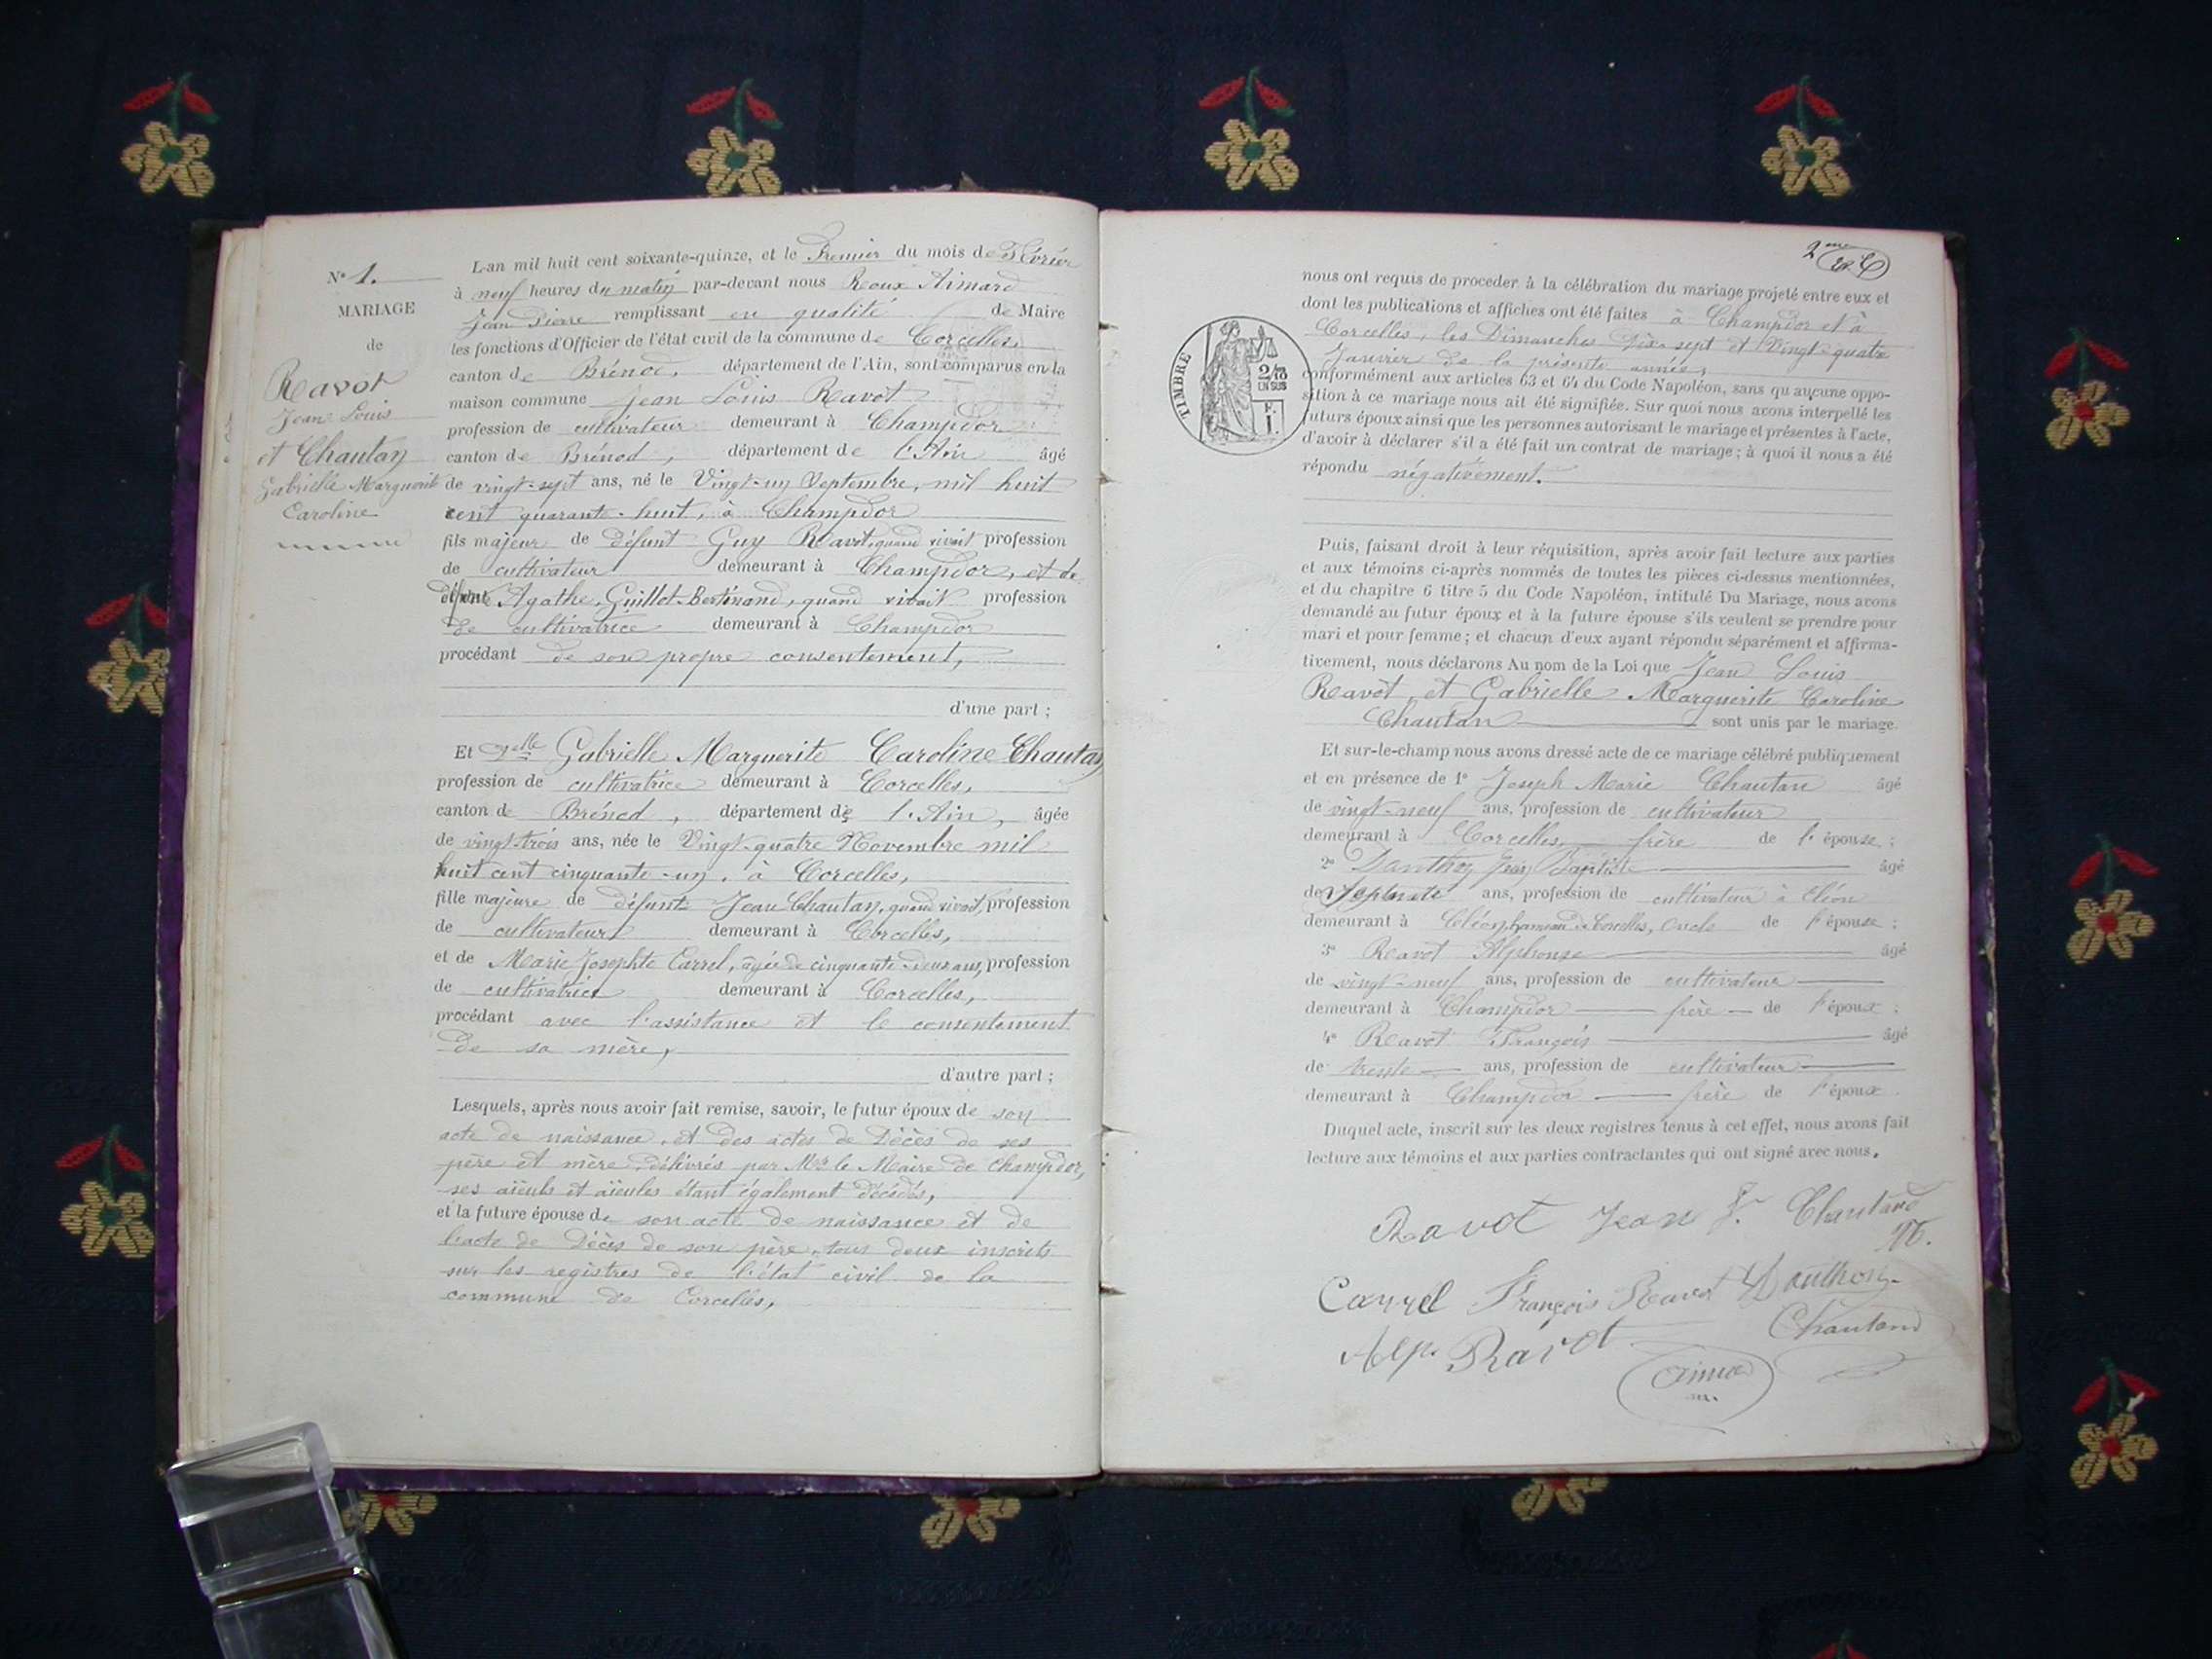 N° 1.
MARIAGE
de
Ravot
Jean Louis
et Chautan
Gabrielle Marguerite
Caroline
L'an mil huit cent soixante-quinze, et le Premier du mois de Février
à neuf heures du matin par-devant nous Roux Aimard
Jean Pierre remplissant en qualité de Maire
les fonctions d'Officier de l'état civil de la commune de Corcelles,
canton de Brénod, département de l'Ain, sont comparus en la
maison commune Jean Louis Ravot
profession de cultivateur demeurant à Champdor
canton de Brénod, département de l'Ain âgé
de vingt-sept ans, né le Vingt-un Septembre, mil huit
cent quarante-huit, à Champdor
fils majeur de défunt Guy Ravot, quand vivait profession
de cultivateur demeurant à Champdor, et de
défunte Agathe Guillot-Bestinand, quand vivait profession
de cultivatrice demeurant à Champdor
procédant de son propre consentement,
d'une part ;
Et Delle Gabrielle Marguerite Caroline Chautan
profession de cultivatrice demeurant à Corcelles,
canton de Brénod, département de l'Ain, âgée
de vingt-trois ans, née le Vingt-quatre Novembre mil
huit cent cinquante-un, à Corcelles,
fille majeure de défunt Jean Chautan, quand vivait, profession
de cultivateur demeurant à Corcelles,
et de Marie Josephte Carrel, âgée de cinquante-deux ans, profession
de cultivatrice demeurant à Corcelles,
procédant avec l'assistance et le consentement
de sa mère,
d'autre part ;
Lesquels, après nous avoir fait remise, savoir, le futur époux de son
acte de naissance, et des actes de Décès de ses
père et mère, délivrés par Mr le Maire de Champdor,
ses aïeuls et aïeules étant également décédés,
et la future épouse de son acte de naissance et de
l'acte de Décès de son père, tous deux inscrits
sur les registres de l'état civil de la
commune de Corcelles,
2me
TIMBRE
2/10
EN SUS
F.
1.
nous ont requis de proceder à la célébration du mariage projeté entre eux et
dont les publications et affiches ont été faites à Champdor et à
Corcelles, les Dimanches Dix-sept et Vingt-quatre
Janvier de la présente année,
conformément aux articles 63 et 64 du Code Napoléon, sans qu'aucune oppo-
sition à ce mariage nous ait été signifiée. Sur quoi nous avons interpellé les
futurs époux ainsi que les personnes autorisant le mariage et présentes à l'acte,
d'avoir à déclarer s'il a été fait un contrat de mariage ; à quoi il nous a été
répondu négativement.
Puis, faisant droit à leur réquisition, après avoir fait lecture aux parties
et aux témoins ci-après nommés de toutes les pièces ci-dessus mentionnées,
et du chapitre 6 titre 5 du Code Napoléon, intitulé Du Mariage, nous avons
demandé au futur époux et à la future épouse s'ils veulent se prendre pour
mari et pour femme ; et chacun d'eux ayant répondu séparément et affirma-
tivement, nous déclarons Au nom de la Loi que Jean Louis
Ravot, et Gabrielle Marguerite Caroline
Chautan sont unis par le mariage.
Et sur-le-champ nous avons dressé acte de ce mariage célébré publiquement
et en présence de 1° Joseph Marie Chautan âgé
de vingt-neuf ans, profession de cultivateur
demeurant à Corcelles, frère de l'épouse ;
2° Danthon Jean Baptiste âgé
de ans, profession de cultivateur à Cléon
demeurant à Cléon, hameau de Corcelles, oncle de l'épouse ;
3° Ravot Alphonse âgé
de vingt-neuf ans, profession de cultivateur
demeurant à Champdor frère de l'époux ;
4° Ravot François âgé
de trente ans, profession de cultivateur
demeurant à Champdor frère de l'époux
Duquel acte, inscrit sur les deux registres tenus à cet effet, nous avons fait
lecture aux témoins et aux parties contractantes qui ont signé avec nous.
Ravot Jean L. Chautand
Carrel François Ravot Danthon
Chautand
Alp. Ravot